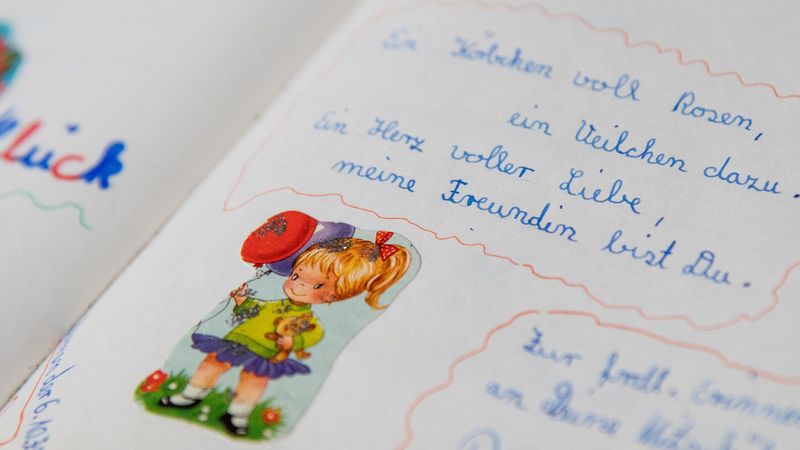 Glück
Ein Körbchen voll Rosen,
ein Veilchen dazu.
Ein Herz voller Liebe,
meine Freundin bist Du.
Zur frdl. Erinner
an Deine
6.10.